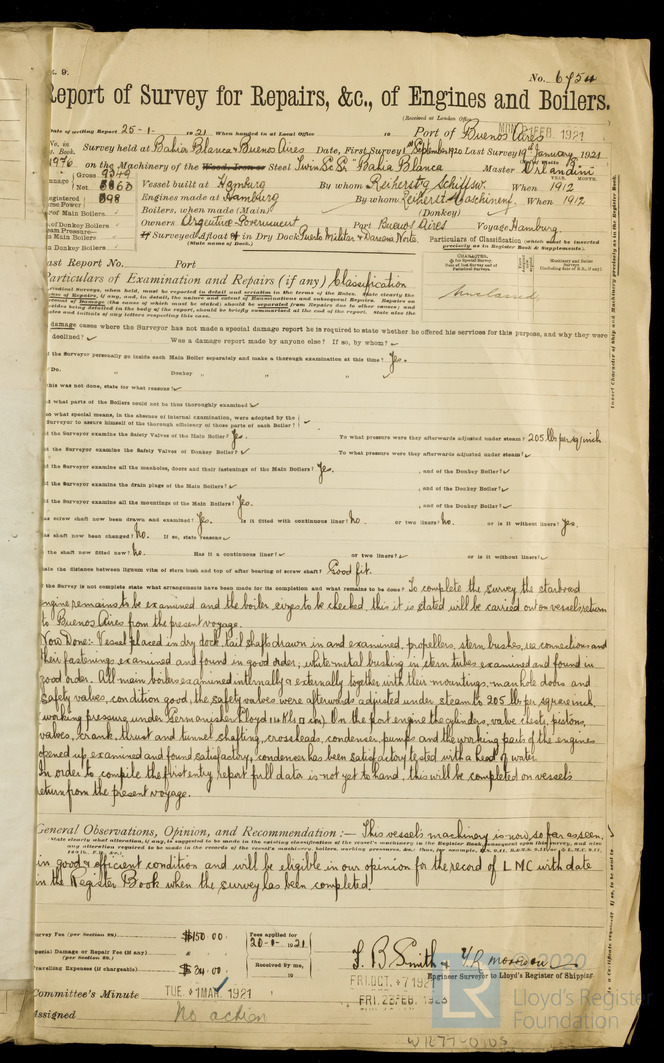 No. 6754
Report of Survey for Repairs, &c., of Engines and Boilers.
(Received at London Office
Date of writing Report 25-1- 1921 When handed in at Local Office 19 Port of Buenos Aires
Survey held at Bahia Blanca & Buenos Aires Date, First Survey 1st September 1920 Last Survey 19th January 1921
on the Machinery of the Wood, Iron or Steel Twin Sc Sr "Bahia Blanca" Master Orlandini
Gross 9349
Net
Vessel built at Hamburg By whom Reiherstg Schiffsw. When 1912
Engines made at Hamburg By whom When 1912
Boilers, when made (Main) (Donkey)
Owners Argentine Government Port Buenos Aires Voyage Hamburg.
If Surveyed Afloat or in Dry Dock Puerto Militar & Darsena Norte.
(State name of Dock.)
Particulars of Classification (which must be inserted precisely as in Register Book & Supplements).
Last Report No. Port
Particulars of Examination and Repairs (if any) Classification
Unclassed
damage cases where the Surveyor has not made a special damage report he is required to state whether he offered his services for this purpose, and why they were
declined? Was a damage report made by anyone else? If so, by whom?
the Surveyor personally go inside each Main Boiler separately and make a thorough examination at this time? Yes.
Do. " Donkey " " "
this was not done, state for what reasons?
what parts of the Boilers could not be thus thoroughly examined
what special means, in the absence of internal examination, were adopted by the
Surveyor to assure himself of the thorough efficiency of those parts of each Boiler?
the Surveyor examine the Safety Valves of the Main Boiler? Yes. To what pressure were they afterwards adjusted under steam? 205 lbs per sq inch
the Surveyor examine the Safety Valves of Donkey Boiler? To what pressure were they afterwards adjusted under steam?
the Surveyor examine all the manholes, doors and their fastenings of the Main Boilers? Yes. , and of the Donkey Boiler?
the Surveyor examine the drain plugs of the Main Boilers? , and of the Donkey Boiler?
the Surveyor examine all the mountings of the Main Boilers? Yes. , and of the Donkey Boiler?
screw shaft now been drawn and examined? Yes. Is it fitted with continuous liner? No. or two liners? No. or is it without liners? Yes.
shaft now been changed? No. If so, state reasons
the shaft now fitted new? No. Has it a continuous liner? or two liners? or is it without liners?
the distance between lignum vitæ of stern bush and top of after bearing of screw shaft? Good fit.
the Survey is not complete state what arrangements have been made for its completion and what remains to be done? To complete the survey the starboard
engine remains to be examined and the boiler sizes to be checked, this it is stated will be carried out on vessels return
to Buenos Aires from the present voyage.
Now Done:- Vessel placed in dry dock, tail shafts drawn in and examined, propellers, stern bushes, sea connections and
their fastenings examined and found in good order, white metal bushing in stern tubes examined and found in
good order. All main boilers examined internally & externally together with their mountings, manhole doors and
safety valves, condition good, the safety valves were afterwards adjusted under steam to 205 lbs per square inch.
working pressure, under Germanischer Lloyd 14 Kls □ cm. On the port engine the cylinders, valve chests, pistons,
valves, crank, thrust and tunnel shafting, crossheads, condenser, pumps and the working parts of the engines
opened up examined and found satisfactory, condenser has been satisfactory tested with a head of water.
In order to compile the first entry report full data is not yet to hand, this will be completed on vessels
return from the present voyage.
General Observations, Opinion, and Recommendation:— This vessels machinery is now, so far as seen,
in good & efficient condition and will be eligible in our opinion for the record of LMC with date
in the Register Book when the survey has been completed.
Survey Fee (per Section 29) $150.00
Fees applied for
20-1-1921
Special Damage or Repair Fee (if any)
(per Section 28.)
Travelling Expenses (if chargeable) $ 24.00
Received by me,
19
Engineer Surveyor to Lloyd's Register of Shipping
Committee's Minute TUE. 1 MAR. 1921
FRI. OCT. 7 1921
Assigned No action
© 2020
Lloyd's Register
Foundation